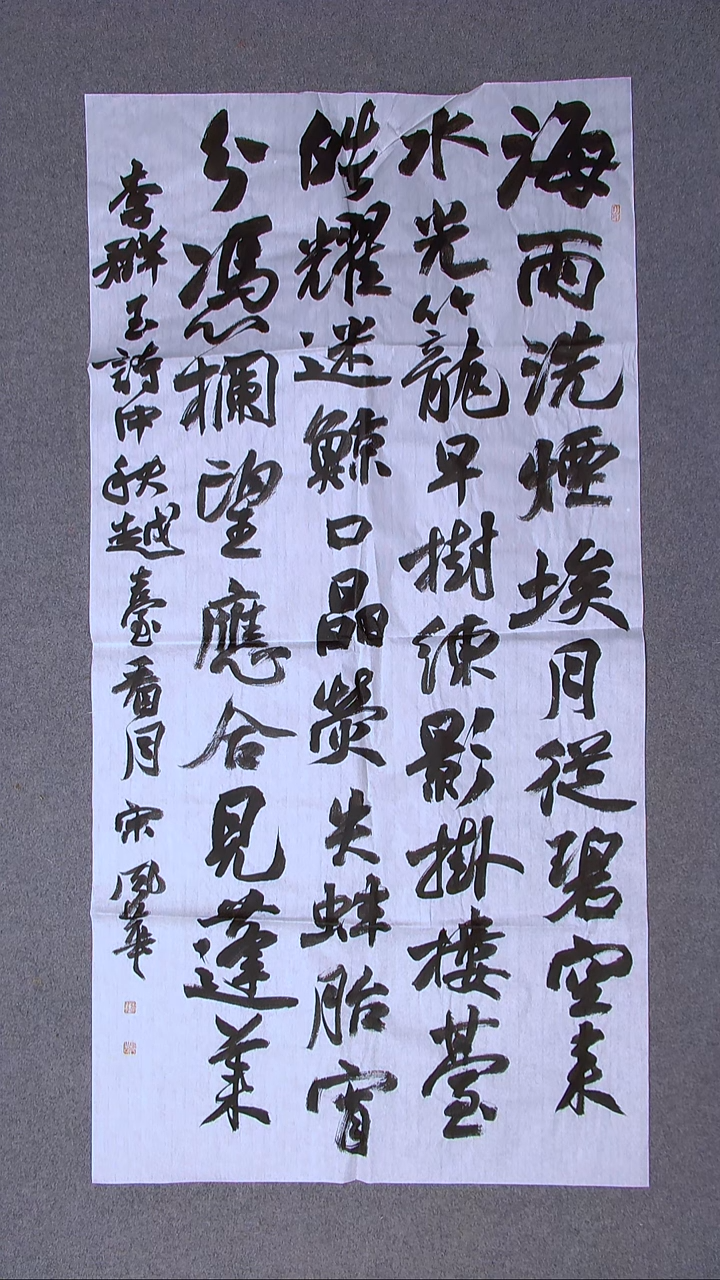 海雨洗煙埃月從碧空來
水光籠早樹練影掛樓臺
皓耀迷鯨口晶熒失蚌胎宵
分憑欄望應合見蓬萊
李群玉詩中秋越臺看月 宋風華